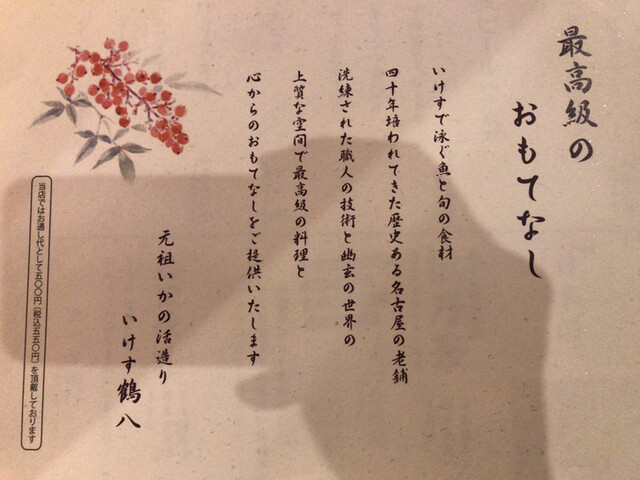 最高級の
おもてなし
いけすで泳ぐ魚と旬の食材
四十年培われてきた歴史ある名古屋の老舗
洗練された職人の技術と幽玄の世界の
上質な空間で最高級の料理と
心からのおもてなしをご提供いたします
元祖いかの活造り
いけす鶴八
当店ではお通し代として五〇〇円(税込五五〇円)を頂戴しております